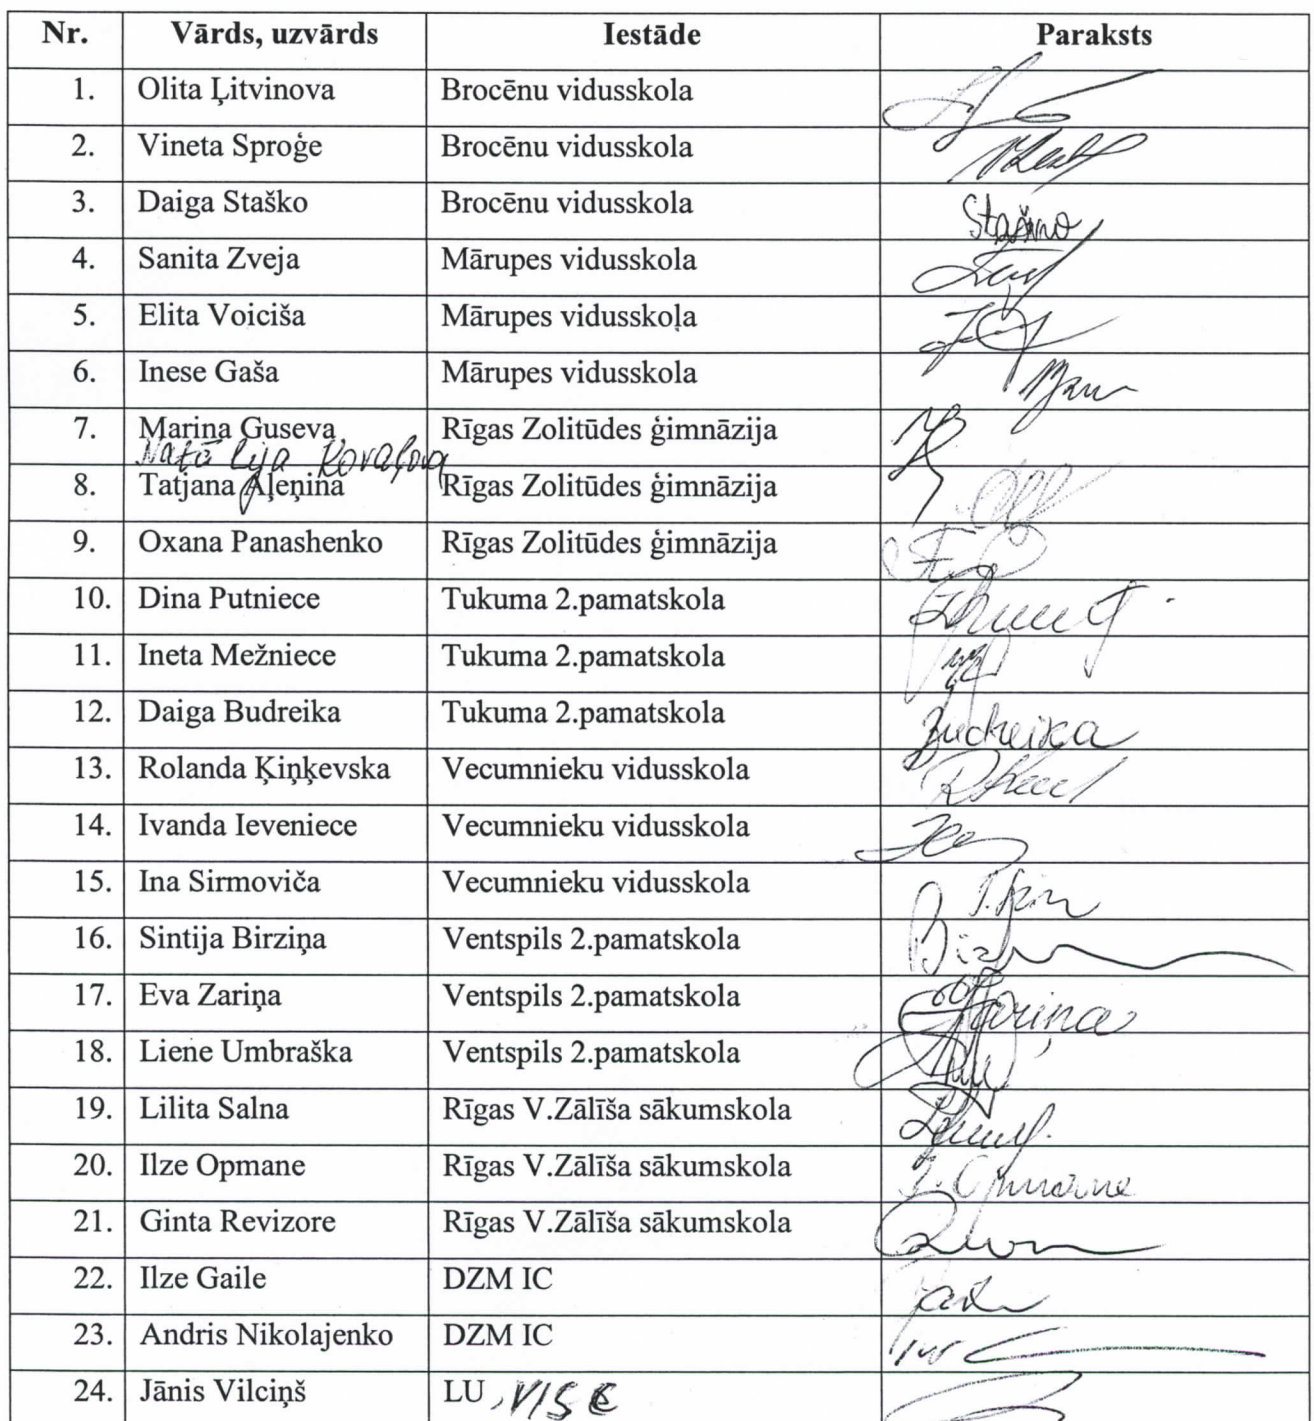 Nr. Vārds, uzvārds Iestāde Paraksts
1. Olita Ļitvinova Brocēnu vidusskola
2. Vineta Sproģe Brocēnu vidusskola
3. Daiga Staško Brocēnu vidusskola Staško
4. Sanita Zveja Mārupes vidusskola
5. Elita Voiciša Mārupes vidusskola
6. Inese Gaša Mārupes vidusskola
7. Marina Guseva Rīgas Zolitūdes ģimnāzija
Natālija Kovaļova
8. Tatjana Aļeņina Rīgas Zolitūdes ģimnāzija
9. Oxana Panashenko Rīgas Zolitūdes ģimnāzija
10. Dina Putniece Tukuma 2.pamatskola
11. Ineta Mežniece Tukuma 2.pamatskola
12. Daiga Budreika Tukuma 2.pamatskola Budreika
13. Rolanda Ķiņķevska Vecumnieku vidusskola
14. Ivanda Ieveniece Vecumnieku vidusskola
15. Ina Sirmoviča Vecumnieku vidusskola
16. Sintija Birziņa Ventspils 2.pamatskola
17. Eva Zariņa Ventspils 2.pamatskola Zariņa
18. Liene Umbraška Ventspils 2.pamatskola
19. Lilita Salna Rīgas V.Zālīša sākumskola
20. Ilze Opmane Rīgas V.Zālīša sākumskola I. Opmane
21. Ginta Revizore Rīgas V.Zālīša sākumskola
22. Ilze Gaile DZM IC
23. Andris Nikolajenko DZM IC
24. Jānis Vilciņš LU, VISC